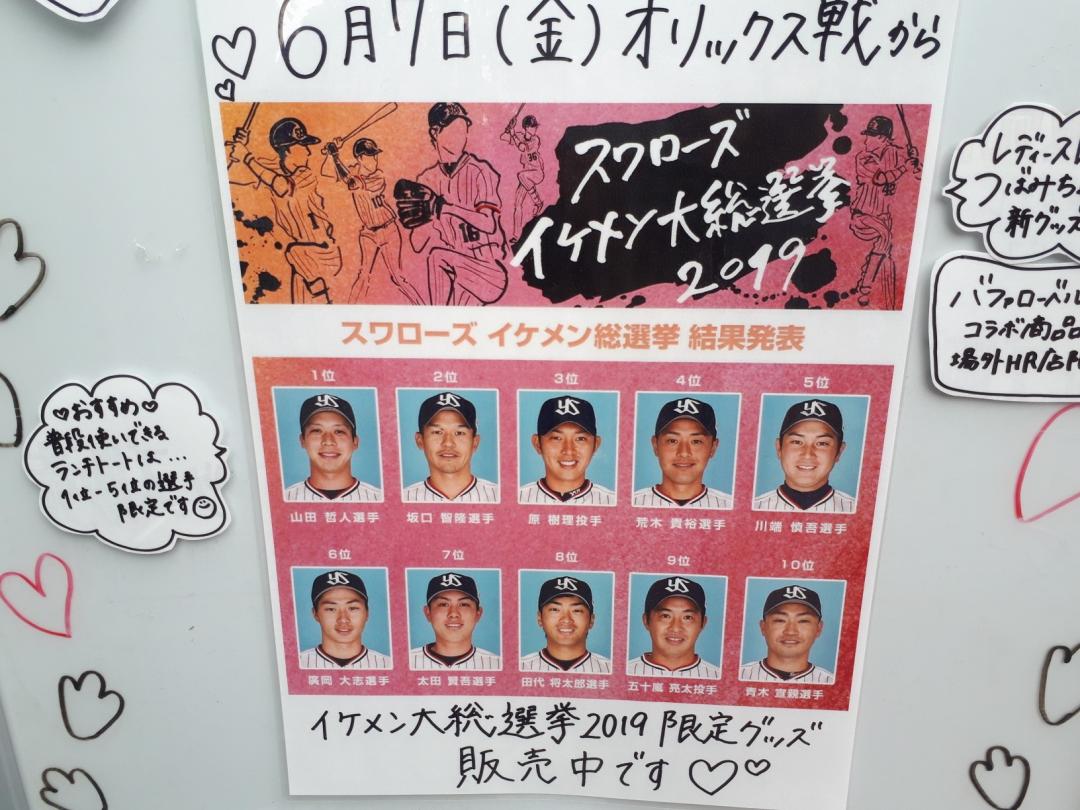 6月7日(金)オリックス戦から
スワローズ
イケメン大総選挙
2019
スワローズ イケメン総選挙 結果発表
1位 2位 3位 4位 5位
山田 哲人選手 坂口 智隆選手 原 樹理投手 荒木 貴裕選手 川端 慎吾選手
6位 7位 8位 9位 10位
廣岡 大志選手 太田 賢吾選手 田代 将太郎選手 五十嵐 亮太投手 青木 宣親選手
イケメン大総選挙2019限定グッズ
販売中です
おすすめ
普段使いできる
ランチトートは…
1位-5位の選手
限定です
レディース
つばみち
新グッズ
バファローベル
コラボ商品
場外HR/
16
36